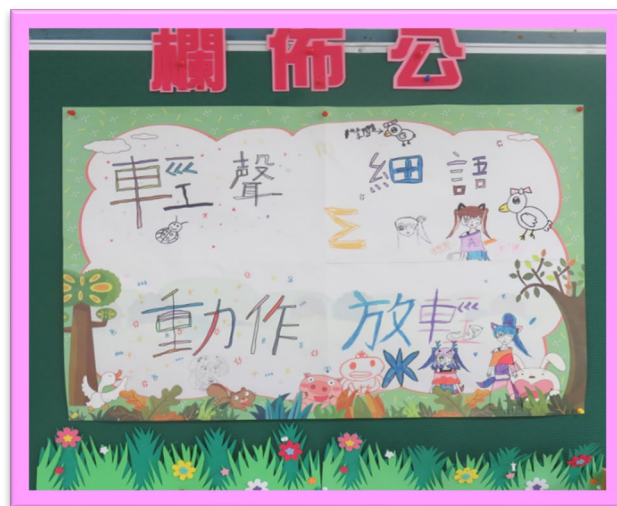 公佈欄
輕聲 細語
動作 放輕